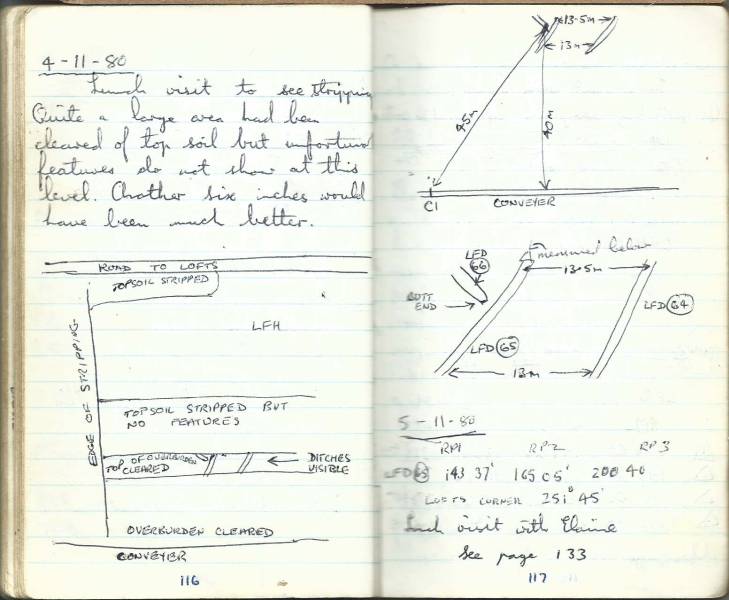 4-11-80
Lunch visit to see stripping
Quite a large area had been
cleared of top soil but
features do not show at this
level. Another six inches would
have been much better.
ROAD TO LOFTS
TOPSOIL STRIPPED
LFH
EDGE OF STRIPPING
TOPSOIL STRIPPED BUT
NO FEATURES
TOP OF OVERBURDEN
CLEARED
DITCHES
VISIBLE
OVERBURDEN CLEARED
CONVEYER
116
13.5m
13m
45m
40m
C1
CONVEYER
measured below
LFD
66
13.5m
BUTT
END
LFD 64
LFD 65
13m
5-11-80
RP1 RP2 RP3
LFD 143 37' 165 05' 200 40
LOFTS CORNER 251° 45'
Lunch visit with Elaine
See page 133
117